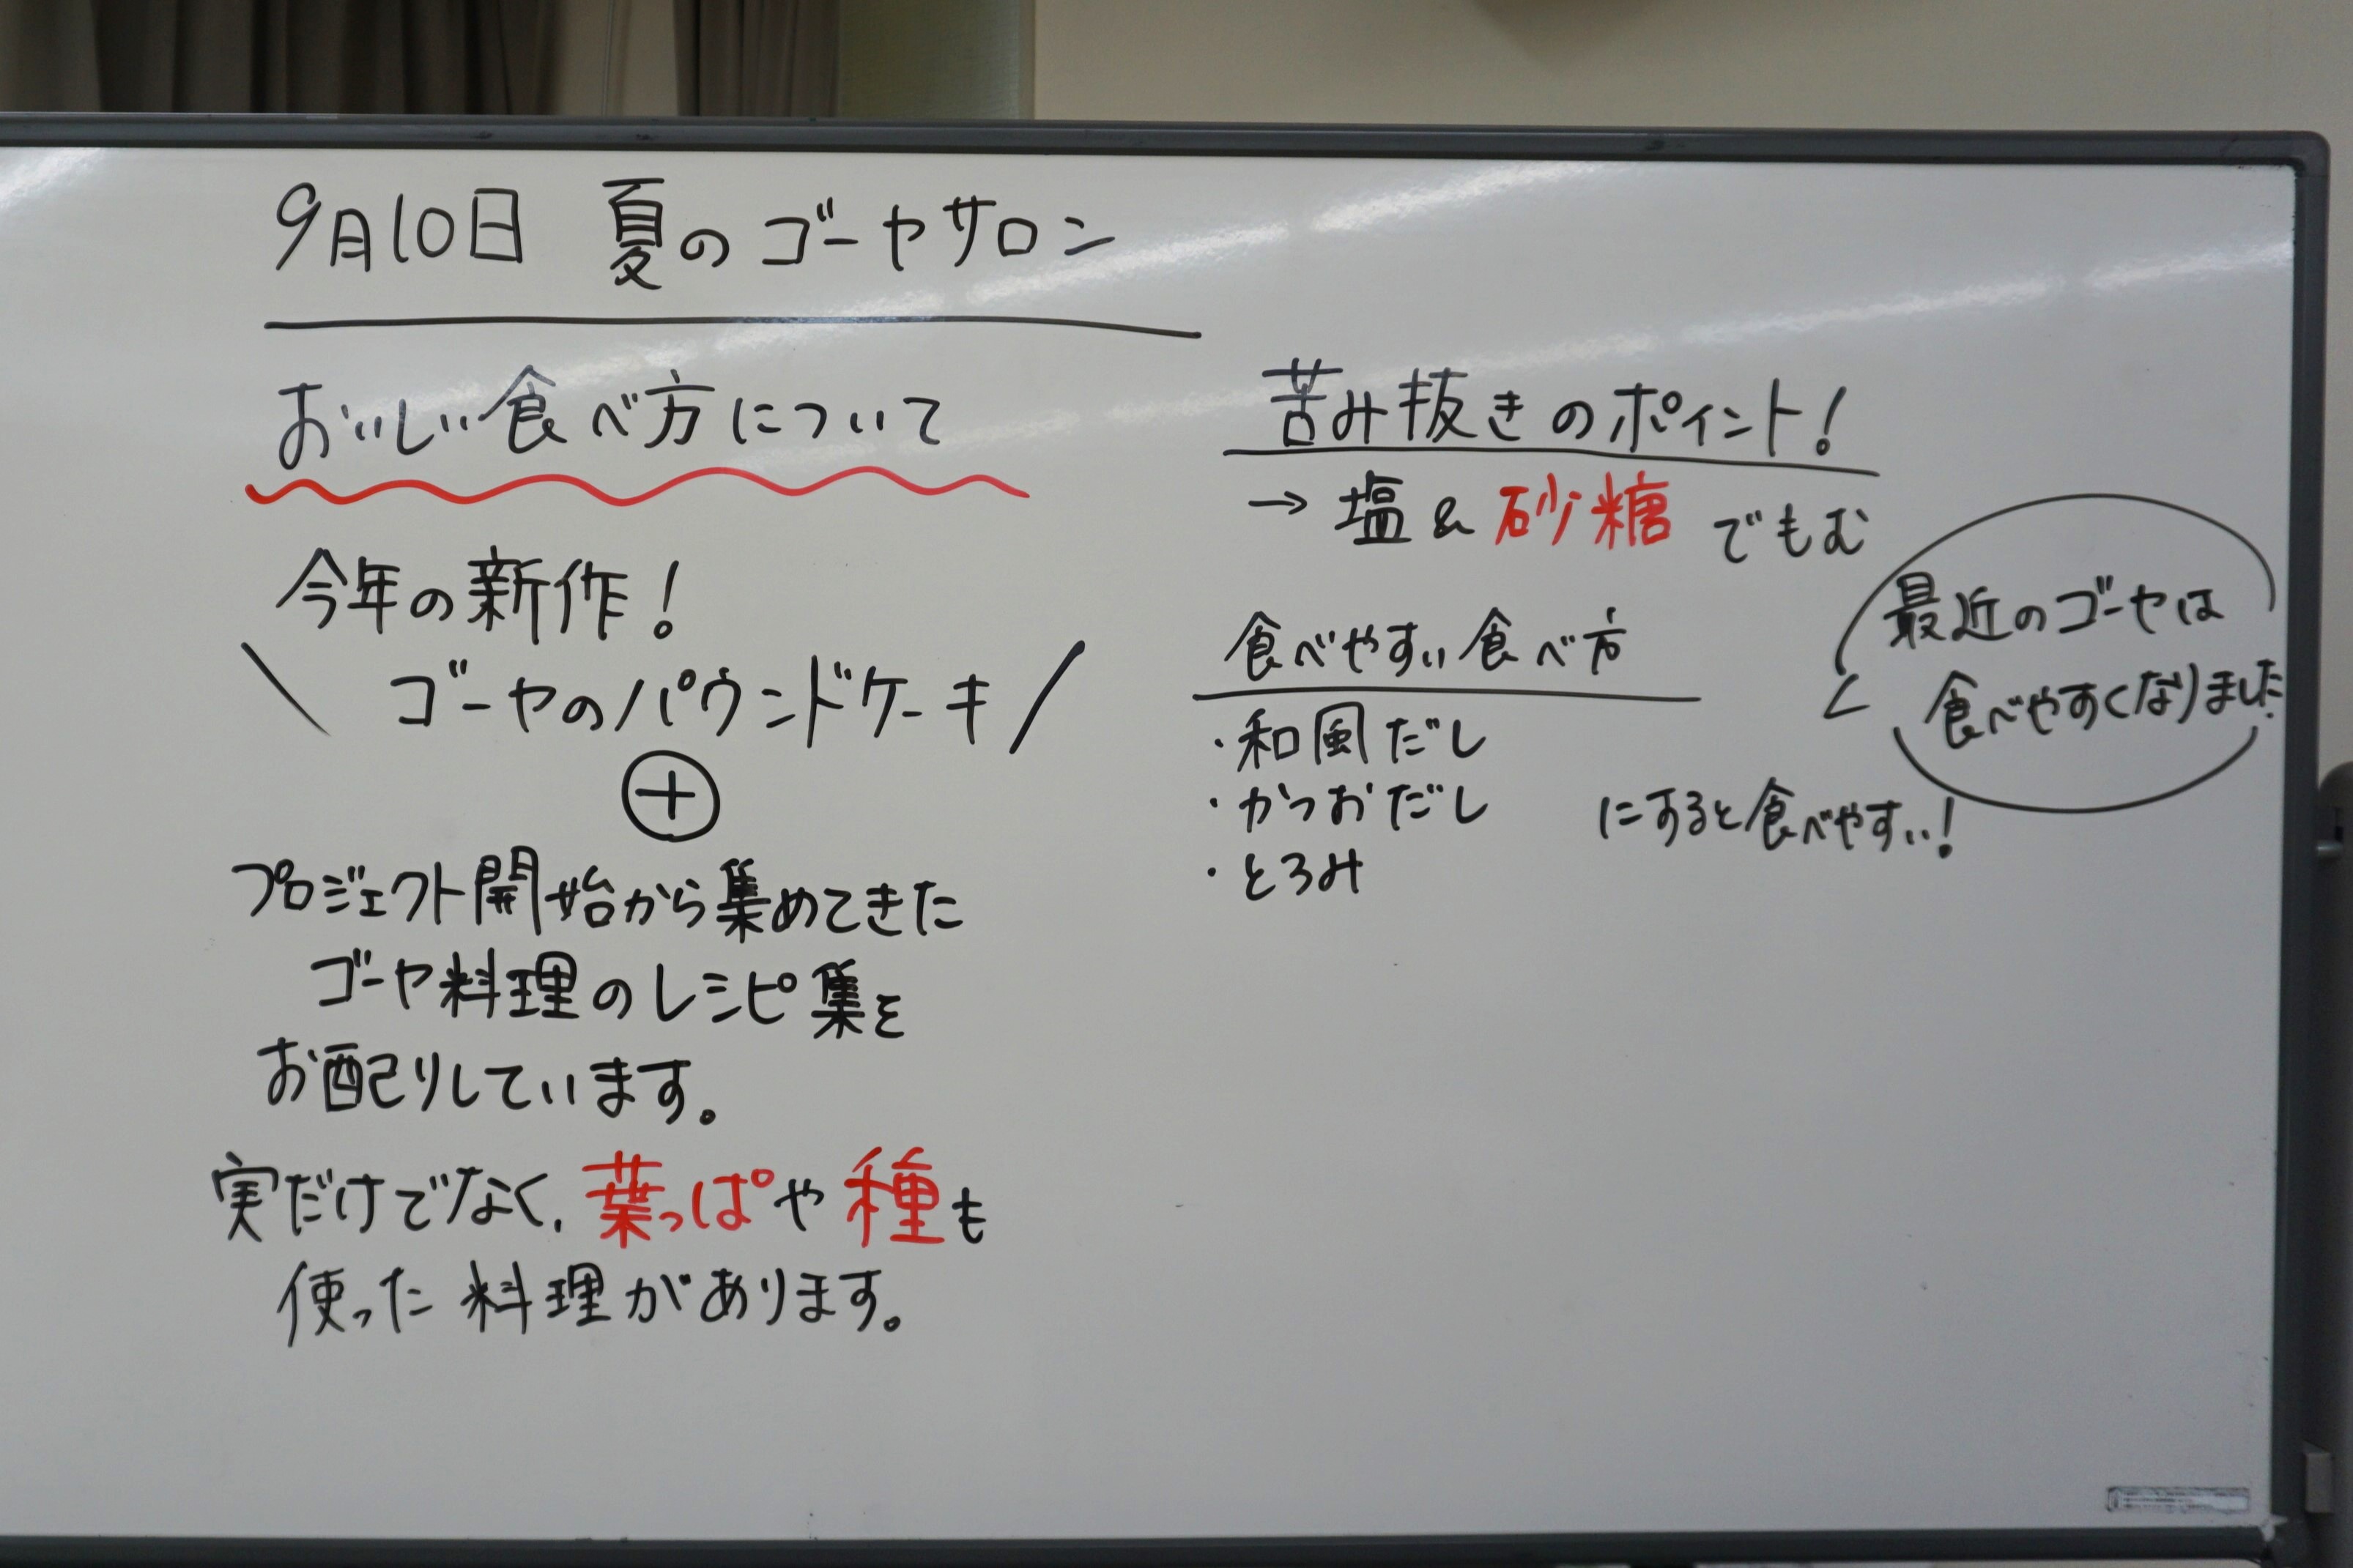 9月10日 夏のゴーヤサロン
おいしい食べ方について
今年の新作！
\ ゴーヤのパウンドケーキ /
⊕
プロジェクト開始から集めてきた
ゴーヤ料理のレシピ集を
お配りしています。
実だけでなく、葉っぱや種も
使った料理があります。
苦み抜きのポイント！
→ 塩 & 砂糖 でもむ
食べやすい食べ方
・和風だし
・かつおだし
・とろみ
にすると食べやすい！
最近のゴーヤは
食べやすくなりました